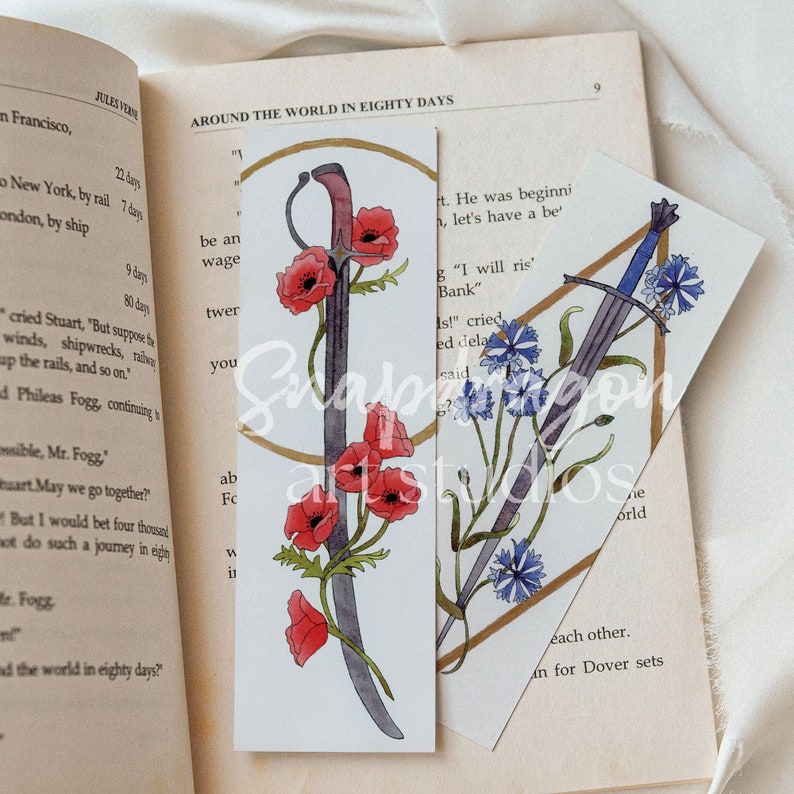 JULES VERNE
n Francisco,
22 days
o New York, by rail 7 days
ondon, by ship
9 days
80 days
" cried Stuart, "But suppose the
winds, shipwrecks, railway
up the rails, and so on."
d Phileas Fogg, continuing to
ossible, Mr. Fogg,"
tuart.May we go together?"
! But I would bet four thousand
not do such a journey in eighty
Mr. Fogg.
en!"
d the world in eighty days?"
AROUND THE WORLD IN EIGHTY DAYS 9
rt. He was beginni
be an n, let's have a be
wage
g "I will ris
Bank"
twen
ds!" cried
ed dela
you
said
g?
Snapdragon
art studios
ab
Fo the
orld
w
in
each other.
in for Dover sets